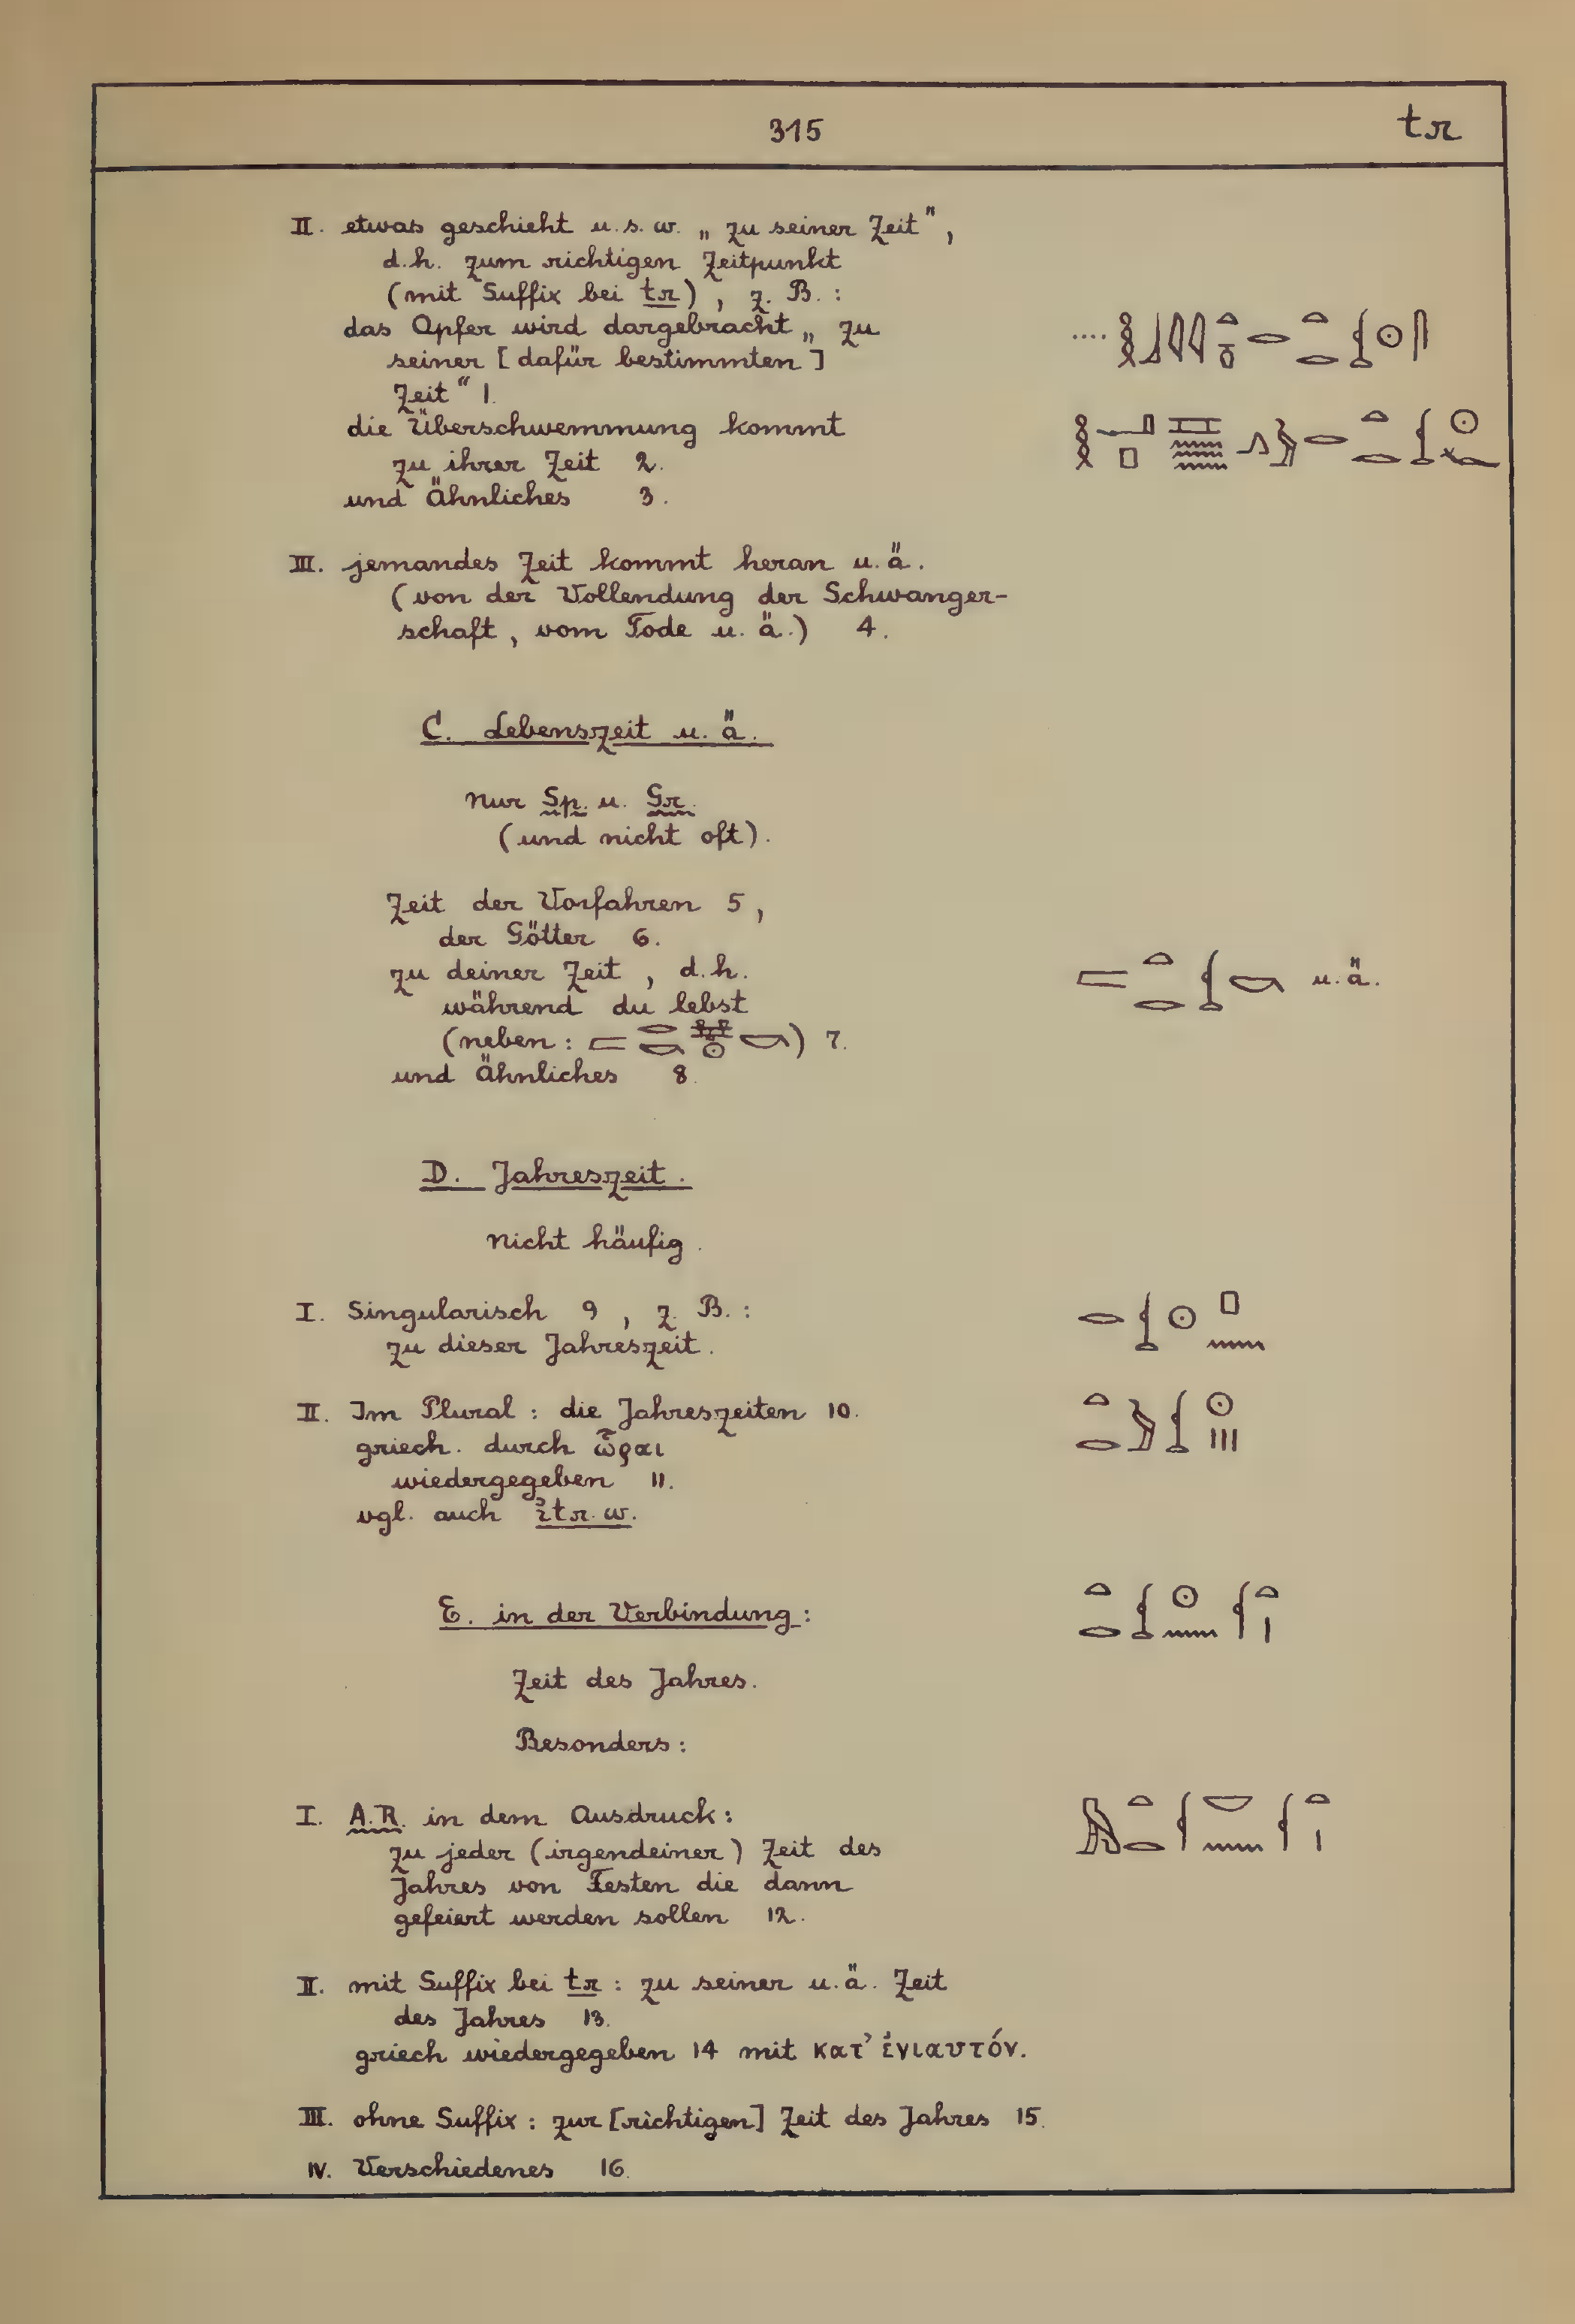 315 tr
II. etwas geschieht u.s.w. „zu seiner Zeit",
d.h. zum richtigen Zeitpunkt
(mit Suffix bei tr), z. B.:
das Opfer wird dargebracht „zu
seiner [dafür bestimmten]
Zeit" 1.
die Überschwemmung kommt
zu ihrer Zeit 2.
und Ähnliches 3.
III. jemandes Zeit kommt heran u.ä.
(von der Vollendung der Schwanger-
schaft, vom Tode u. ä.) 4.
C. Lebenszeit u. ä.
nur Sp. u. Gr.
(und nicht oft).
Zeit der Vorfahren 5,
der Götter 6.
zu deiner Zeit, d.h. u.ä.
während du lebst
(neben: ) 7.
und Ähnliches 8.
D. Jahreszeit.
nicht häufig.
I. Singularisch 9, z. B.:
zu dieser Jahreszeit.
II. Im Plural: die Jahreszeiten 10.
griech. durch ὧραι
wiedergegeben 11.
vgl. auch ἰtr.w.
E. in der Verbindung:
Zeit des Jahres.
Besonders:
I. A.R. in dem Ausdruck:
zu jeder (irgendeiner) Zeit des
Jahres von Festen die dann
gefeiert werden sollen 12.
II. mit Suffix bei tr: zu seiner u.ä. Zeit
des Jahres 13.
griech wiedergegeben 14 mit κατ' ἐνιαυτόν.
III. ohne Suffix: zur [richtigen] Zeit des Jahres 15.
IV. Verschiedenes 16.